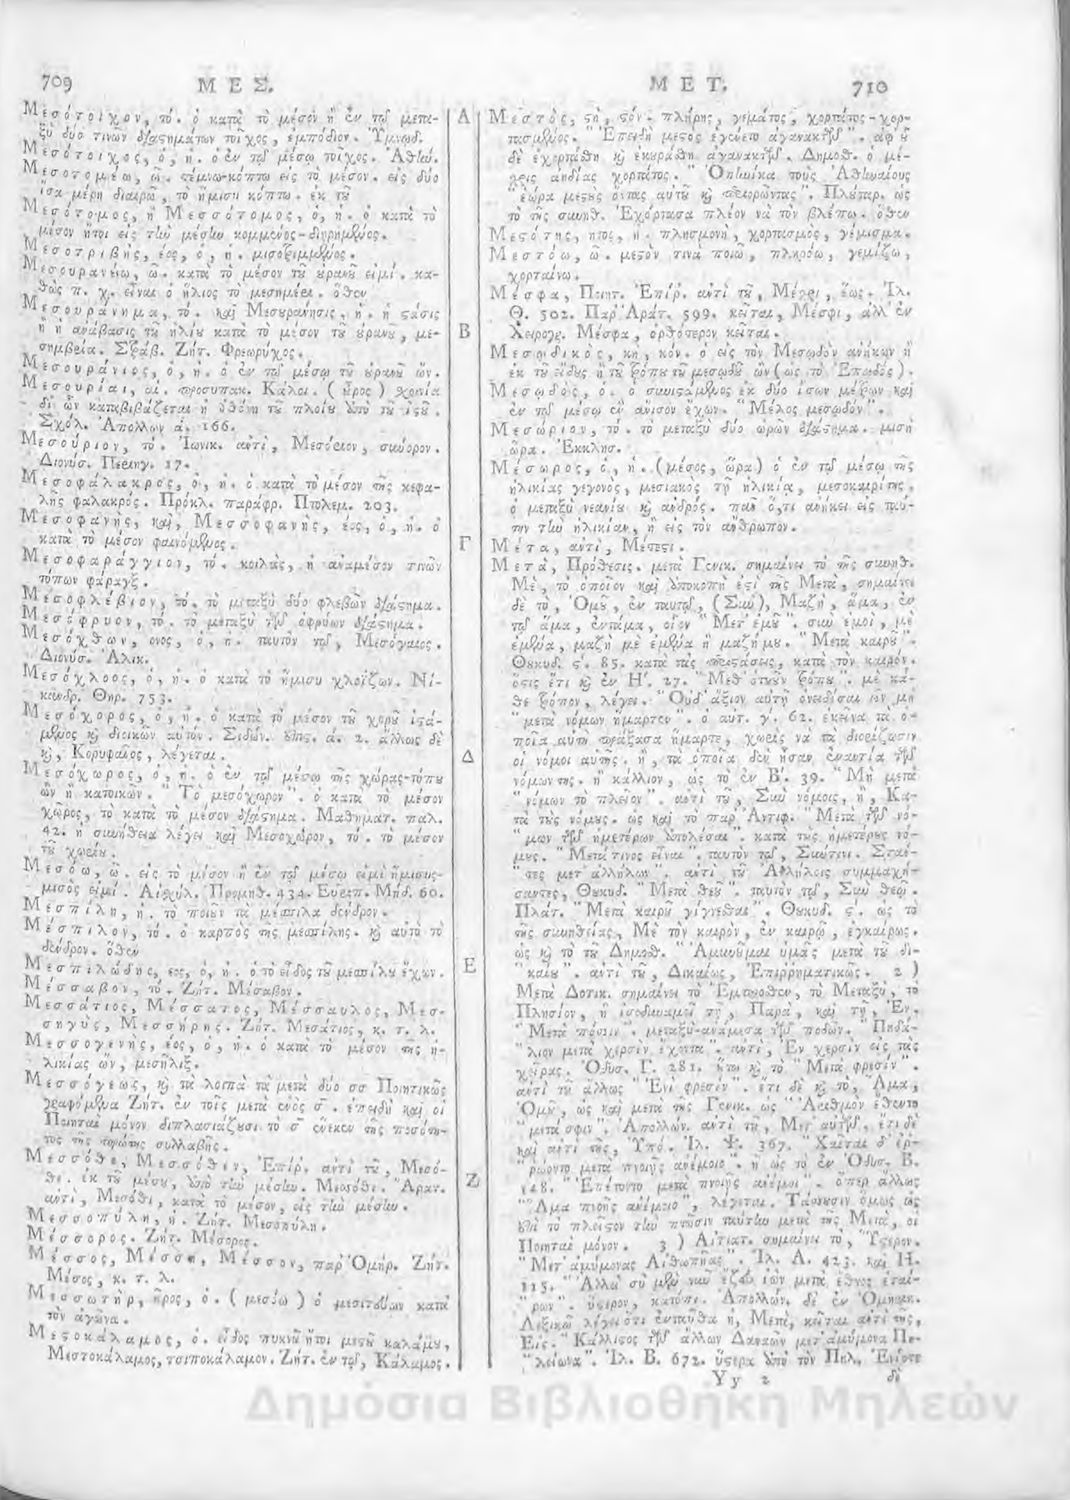 709 ΜΕΣ.
Μεσότοιχον, τό. ὁ κατὰ τὸ μέσον ἢ ἐν τῷ μετα-
ξὺ δύο τινῶν διαστημάτων τοῖχος, ἐμπόδιον. Ὑμνῳδ.
Μεσότοιχος, ὁ, ἡ. ὁ ἐν τῷ μέσῳ τοῖχος. Ἀθήν.
Μεσοτομέω, ῶ. τέμνω-κόπτω εἰς τὸ μέσον. εἰς δύο
ἴσα μέρη διαιρῶ, τὸ ἥμισυ κόπτω. ἐκ τοῦ
Μεσότομος, ἢ Μεσσότομος, ὁ, ἡ. ὁ κατὰ τὸ
μέσον ἤτοι εἰς τὴν μέσην κομμένος-διῃρημένος.
Μεσοτριβής, έος, ὁ, ἡ. μισοτριμμένος.
Μεσουρανέω, ῶ. κατὰ τὸ μέσον τοῦ οὐρανοῦ εἰμί. κα-
θὼς π. χ. εἶναι ὁ ἥλιος τὸ μεσημέρι. ὅθεν
Μεσουράνημα, τό. καὶ Μεσουράνησις, ἡ. ἡ στάσις
ἢ ἡ ἀνάβασις τοῦ ἡλίου κατὰ τὸ μέσον τοῦ οὐρανοῦ, με-
σημβρία. Στράβ. Ζήτ. Φρεωρύχος.
Μεσουράνιος, ὁ, ἡ. ὁ ἐν τῷ μέσῳ τοῦ οὐρανοῦ ὤν.
Μεσουρίαι, αἱ. προσυπακ. Κάλοι. (ὅρος) χοινία
δι' ὧν καταβιβάζεται ἡ ὀθόνη τοῦ πλοίου ἀπὸ τοῦ ἱστοῦ.
Σχόλ. Ἀπολλων α. 166.
Μεσούριον, τό. Ἰωνικ. ἀντὶ, Μεσόριον, σύνορον.
Διονύσ. Περιηγ. 17.
Μεσοφάλακρος, ὁ, ἡ. ὁ κατὰ τὸ μέσον τῆς κεφα-
λῆς φαλακρός. Πρόκλ. παράφρ. Πτολεμ. 203.
Μεσοφανής, καὶ, Μεσσοφανής, έος, ὁ, ἡ. ὁ
κατὰ τὸ μέσον φαινόμενος.
Μεσοφαράγγιον, τό. κοιλὰς, ἡ ἀναμέσον τινῶν
τόπων φάραγξ.
Μεσοφλέβιον, τό. τὸ μεταξὺ δύο φλεβῶν διάστημα.
Μεσόφρυον, τό. τὸ μεταξὺ τῶν ὀφρύων διάστημα.
Μεσόχθων, ονος, ὁ, ἡ. ταυτὸν τῷ, Μεσόγαιος.
Διονύσ. Ἁλικ.
Μεσόχλοος, ὁ, ἡ. ὁ κατὰ τὸ ἥμισυ χλοΐζων. Νί-
κανδρ. Θηρ. 753.
Μεσόχορος, ὁ, ἡ. ὁ κατὰ τὸ μέσον τοῦ χοροῦ ἱστά-
μενος καὶ διοικῶν αὐτόν. Σιδών. ἐπις. α. 2. ἄλλως δὲ
καὶ, Κορυφαῖος, λέγεται.
Μεσόχωρος, ὁ, ἡ. ὁ ἐν τῷ μέσῳ τῆς χώρας-τόπου
ὢν ἢ κατοικῶν. "Τὸ μεσόχωρον". ὁ κατὰ τὸ μέσον
χῶρος, τὸ κατὰ τὸ μέσον διάστημα. Μαθηματ. παλ.
42. ἡ συνήθεια λέγει καὶ Μεσοχώρον, τό. τὸ μέσον
τοῦ χωρίου.
Μεσόω, ῶ. εἰς τὸ μέσον ἢ ἐν τῷ μέσῳ εἰμὶ ἥμισυς-
μισὸς εἰμί. Αἰσχύλ. Προμηθ. 434. Εὐριπ. Μήδ. 60.
Μεσπίλη, ἡ. τὸ ποιοῦν τὰ μέσπιλα δένδρον.
Μέσπιλον, τό. ὁ καρπὸς τῆς μεσπίλης. καὶ αὐτὸ τὸ
δένδρον. ὅθεν
Μεσπιλώδης, εος, ὁ, ἡ. ὁ τὸ εἶδος τοῦ μεσπίλου ἔχων.
Μέσσαβον, τό. Ζήτ. Μέσαβον.
Μεσσάτιος, Μέσσατος, Μέσσαυλος, Μεσ-
σηγὺς, Μεσσήρης. Ζήτ. Μεσάτιος, κ. τ. λ.
Μεσσογενὴς, έος, ὁ, ἡ. ὁ κατὰ τὸ μέσον τῆς ἡ-
λικίας ὤν, μεσῆλιξ.
Μεσσόγεως, καὶ τὰ λοιπὰ τὰ μετὰ δύο σσ Ποιητικῶς
γραφόμενα Ζήτ. ἐν τοῖς μετὰ ἑνὸς σ. ἐπειδὴ καὶ οἱ
Ποιηταὶ μόνον διπλασιάζουσι τὸ σ ἕνεκεν τῆς ποσότη-
τος τῆς πρώτης συλλαβῆς.
Μεσσόθε, Μεσσόθεν, Ἐπίρ. ἀντὶ τοῦ, Μεσό-
θε. ἐκ τοῦ μέσου, ἀπὸ τὴν μέσην. Μεσσόθι. Ἄρατ.
ἀντὶ, Μεσόθι, κατὰ τὸ μέσον, εἰς τὴν μέσην.
Μεσσοπύλη, ἡ. Ζήτ. Μεσοπύλη.
Μέσσορος. Ζήτ. Μέσορος.
Μέσσος, Μέσση, Μέσσον, παρ' Ὁμήρ. Ζήτ.
Μέσος, κ. τ. λ.
Μεσσωτὴρ, ῆρος, ὁ. (μεσόω) ὁ μεσιτεύων κατὰ
τὸν ἀγῶνα.
Μεστοκάλαμος, ὁ. εἶδος πυκνοῦ ἤτοι μεστοῦ καλάμου,
Μεστοκάλαμος, τσιποκάλαμον. Ζήτ. ἐν τῷ, Κάλαμος.
Α
Β
Γ
Δ
Ε
Ζ
ΜΕΤ. 710
Μεστὸς, στὴ, στόν. πλήρης, γεμάτος, χορτάτος-χορ-
τασμένος. "Ἐπειδὴ μεστὸς ἐγένετο ἀγανακτῶν". ἀφ' οὗ
δὲ ἐχορτάσθη καὶ ἐκοράσθη ἀγανακτῶν. Δημοσθ. ὁ μέ-
χρις ἀηδίας χορτάτος. "Ὁπηνίκα τοὺς Ἀθηναίους
"ἑώρα μεστοὺς ὄντας αὐτοῦ καὶ προορῶντας". Πλούταρ. ὡς
τὸ τῆς συνηθ. Ἐχόρτασα πλέον νὰ τὸν βλέπω. ὅθεν
Μεστότης, ητος, ἡ. πλησμονὴ, χορτασμὸς, γέμισμα.
Μεστόω, ῶ. μεστόν τινα ποιῶ, πληρόω, γεμίζω,
χορταίνω.
Μέσφα, Ποιητ. Ἐπίρ. ἀντὶ τοῦ, Μέχρι, ἕως. Ἰλ.
Θ. 502. Παρ' Ἀράτ. 599. κεῖται, Μέσφι, ἀλλ' ἐν
Χειρογρ. Μέσφα, ὀρθότερον κεῖται.
Μεσῳδικὸς, κὴ, κόν. ὁ εἰς τὸν Μεσῳδὸν ἀνήκων ἢ
ἐκ τοῦ εἴδους ἢ τοῦ τρόπου τοῦ μεσῳδοῦ ὢν (ὡς τὸ Ἐπῳδός).
Μεσῳδὸς, ὁ. ὁ συνιστάμενος ἐκ δύο ἴσων μέτρων καὶ
ἐν τῷ μέσῳ ἓν ἄνισον ἔχων. "Μέλος μεσῳδόν".
Μεσώριον, τό. τὸ μεταξὺ δύο ὡρῶν διάστημα. μισὴ
ὥρα. Ἐκκλησ.
Μέσωρος, ὁ, ἡ. (μέσος, ὥρα) ὁ ἐν τῷ μέσῳ τῆς
ἡλικίας γεγονὼς, μεσιακὸς τῇ ἡλικίᾳ, μεσοκαιρίτης.
ὁ μεταξὺ νεανίου καὶ ἀνδρός. πᾶν ὅ,τι ἀνήκει εἰς ταύ-
την τὴν ἡλικίαν, ἢ εἰς τὸν ἄνθρωπον.
Μέτα, ἀντὶ, Μέτεστι.
Μετὰ, Πρόθεσις. μετὰ Γενικ. σημαίνει τὸ τῆς συνηθ.
Μὲ, τὸ ὁποῖον καὶ ἀποκοπὴ ἐστὶ τῆς Μετὰ, σημαίνει
δὲ τὸ, Ὁμοῦ, ἐν ταυτῷ, (Σὺν), Μαζὴ, ἅμα, ἐν
τῷ ἅμα, ἐντάμα, οἷον "Μετ' ἐμοῦ". σὺν ἐμοὶ, μὲ
ἐμένα, μαζὴ μὲ ἐμένα ἢ μαζήμου. "Μετὰ καιροῦ".
Θουκυδ. ς. 85. κατὰ τὰς περιστάσεις, κατὰ τὸν καιρόν.
ὅστις ἔτι καὶ ἐν Η. 27. "Μεθ' ὅτου τρόπου". μὲ κά-
θε τρόπον, λέγει. "Οὐδ' ἄξιον αὐτῇ ὀνειδίσαι ὧν μὴ
"μετὰ νόμων ἥμαρτεν". ὁ αὐτ. γ. 62. ἐκεῖνα τὰ ὁ-
ποῖα αὐτὴ πράξασα ἥμαρτε, χωρὶς νὰ τὰ διορίζωσιν
οἱ νόμοι αὐτῆς. ἢ, τὰ ὁποῖα δὲν ἦσαν ἐναντία τῶν
νόμων της. ἢ κάλλιον, ὡς τὸ ἐν Β. 39. "Μὴ μετὰ
"νόμων τὸ πλεῖον". ἀντὶ τοῦ, Σὺν νόμοις, ἢ, Κα-
τὰ τοὺς νόμους. ὡς καὶ τὸ παρ' Ἀντιφ. "Μετὰ τῶν νό-
"μων τῶν ἡμετέρων ἀπολέσαι". κατὰ τοὺς ἡμετέρους νό-
μους. "Μετά τινος εἶναι". ταυτὸν τῷ, Σύν τινι. Στάν-
"τες μετ' ἀλλήλων". ἀντὶ τοῦ Ἀλλήλοις συμμαχή-
σαντες, Θουκυδ. "Μετὰ θεοῦ". ταυτὸν τῷ, Σὺν θεῷ.
Πλάτ. "Μετὰ καιροῦ γίγνεσθαι". Θουκυδ. ς. ὡς τὸ
τῆς συνηθείας, Μὲ τὸν καιρὸν, ἐν καιρῷ, ἐγκαίρως.
ὡς καὶ τὸ τοῦ Δημοσθ. "Ἀμυνοῦμαι ὑμᾶς μετὰ τοῦ δι-
"καίου". ἀντὶ τοῦ, Δικαίως, Ἐπιρρηματικῶς. 2)
Μετὰ Δοτικ. σημαίνει τὸ Ἔμπροσθεν, τὸ Μεταξὺ, τὸ
Πλησίον, ἢ ἰσοδυναμεῖ τῇ, Παρὰ, καὶ τῇ, Ἐν.
"Μετὰ ποσίν". μεταξὺ-ἀνάμεσα τῶν ποδῶν. "Πηδά-
"λιον μετὰ χερσὶν ἔχοντα". ἀντὶ, Ἐν χερσὶν εἰς τὰς
χεῖρας. Ὀδυσ. Γ. 281. ἤτοι καὶ τὸ "Μετὰ φρεσίν".
ἀντὶ τοῦ ἄλλως "Ἐνὶ φρεσίν". ἔτι δὲ καὶ τὸ, Ἅμα,
Ὁμοῦ, ὡς καὶ μετὰ τῆς Γενικ. ὡς "Ἀριθμὸν ἔθεντο
"μετὰ σφίν". Ἀπολλων. ἀντὶ τοῦ, Μετ' αὐτῶν, ἔτι δὲ
καὶ ἀντὶ τῆς, Ὑπό. Ἰλ. Ψ. 367. "Χαῖται δ' ἐρ-
"ρώοντο μετὰ πνοιῇς ἀνέμοιο". ἢ ὡς τὸ ἐν Ὀδυσ. Β.
148. "Ἐπέτοντο μετὰ πνοιῇς ἀνέμοι". ὅπερ ἄλλως
"Ἅμα πνοιῇς ἀνέμοιο", λέγεται. Τάσσουσιν ὅμως ὡς
ἐπὶ τὸ πλεῖστον τὴν πτῶσιν ταύτην μετὰ τῆς Μετὰ, οἱ
Ποιηταὶ μόνον. 3) Αἰτιατ. σημαίνει τὸ, Ὕστερον.
"Μετ' ἀμύμονας Αἰθιοπῆας". Ἰλ. Α. 423. καὶ Η.
115. "Ἀλλὰ σὺ μὲν νῦν ἵζευ ἰὼν μετὰ ἔθνος ἑταί-
"ρων". ὕστερον, κατόπι. Ἀπολλων. δὲ ἐν Ὁμηρικ.
Λεξικῷ λέγει ὅτι ἐνταῦθα ἡ, Μετὰ, κεῖται ἀντὶ τῆς,
Εἰς. "Κάλλιστος τῶν ἄλλων Δαναῶν μετ' ἀμύμονα Πη-
"λείωνα". Ἰλ. Β. 672. ὕστερα ἀπὸ τὸν Πηλ. Ἐνίοτε
Yy 2 δὲ
Δημόσια Βιβλιοθήκη Μηλεών